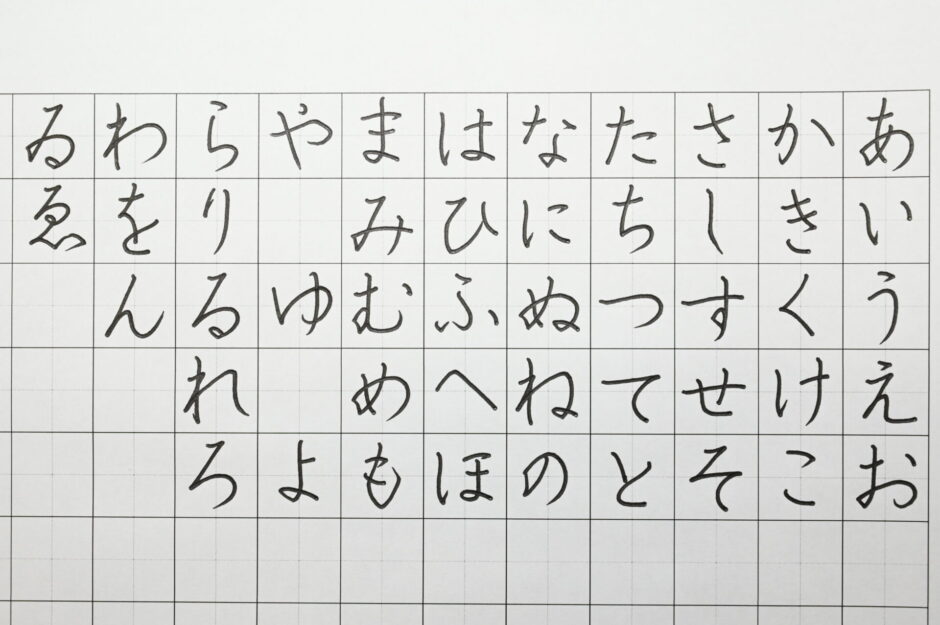 あいうえお
かきくけこ
さしすせそ
たちつてと
なにぬねの
はひふへほ
まみむめも
やゆよ
らりるれろ
わをん
ゐゑ